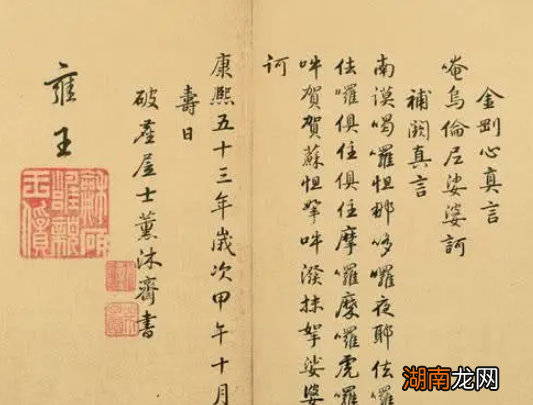 金剛心真言
唵烏倫尼娑婆訶
補闕真言
南謨喝囉怛那哆囉夜耶佉囉
佉囉俱住俱住摩囉摩囉虎囉
吽賀賀蘇怛拏吽潑抹拏娑婆
訶
康熙五十三年歲次甲午十月
壽日
破塵居士薰沐齋書
雍王
湖南龙网